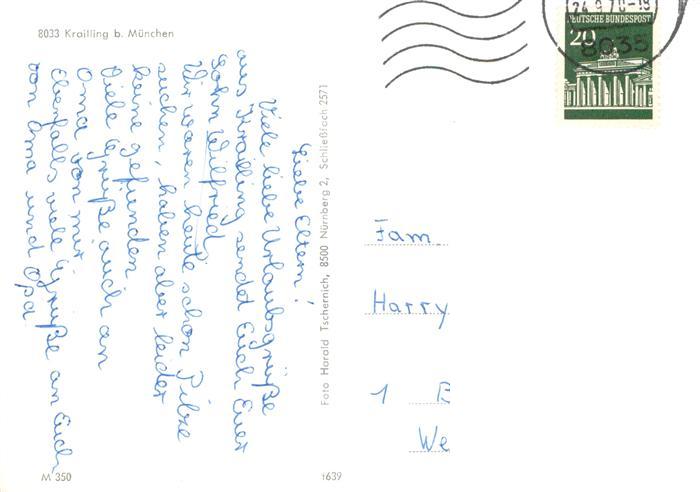 8033 Krailling b. München
Liebe Eltern!
Viele liebe Urlaubsgrüße
aus Krailling sendet Euch Euer
Sohn Wilfried
Wir waren heute schon Pilze
suchen, haben aber leider
keine gefunden
Viele Grüße auch an
Oma von mir
Ebenfalls viele Grüße an Euch
von Oma und Opa
M 350
Foto Harald Tschernich, 8500 Nürnberg 2, Schließfach 2571
1639
24.9.70-18
8035
DEUTSCHE BUNDESPOST
20
Fam.
Harry
1
We